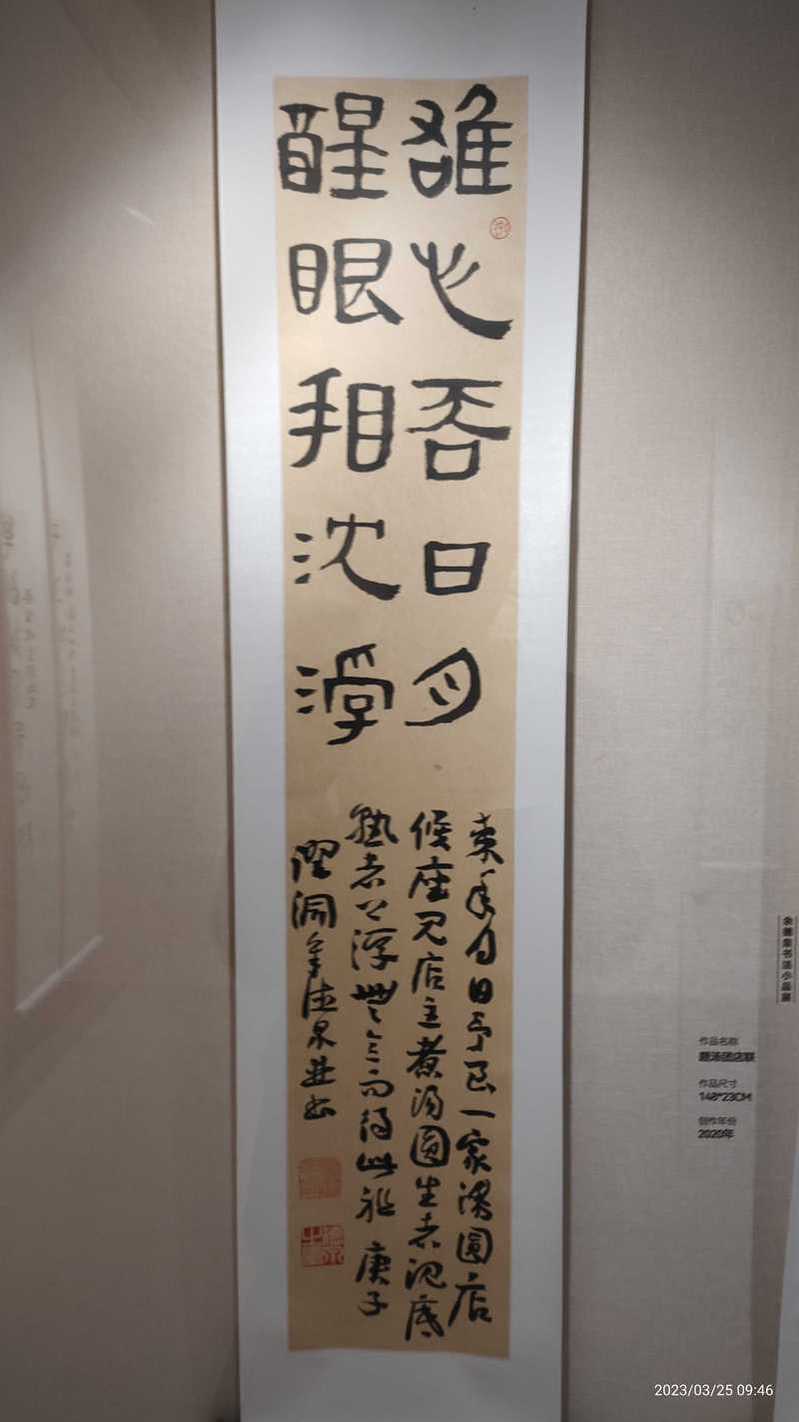 雄心吞日月
醒眼看沈浮
某年月日予至一家湯圓店
候座见店主煮湯圓生者沉底
熟者上浮 而得此聯 庚子
余德泉並书
余德泉书法小品展
作品名称
题汤团店联
作品尺寸
148*23CM
创作年份
2020年
2023/03/25 09:46